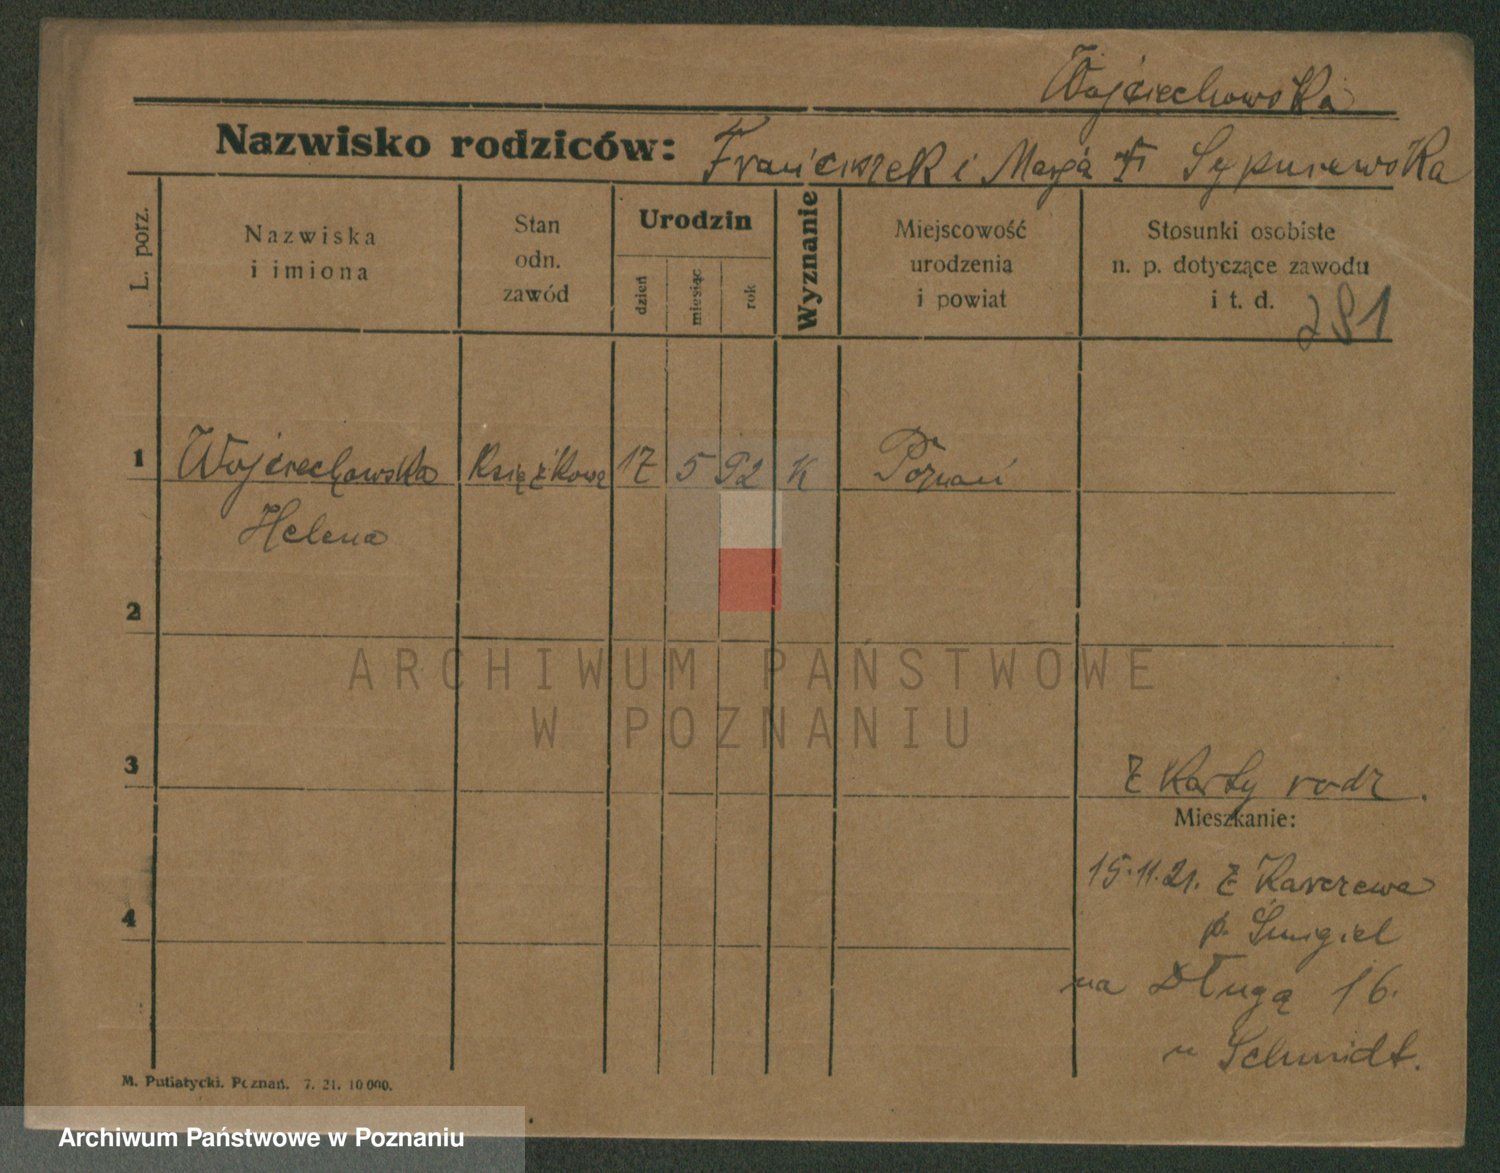 Wojciechowska
Nazwisko rodziców: Franciszek i Marja
L. porz.
Nazwiska
i imiona
Stan
odn.
zawód
Urodzin
dzień
miesiąc
rok
Wyznanie
Miejscowość
urodzenia
i powiat
Stosunki osobiste
n. p. dotyczące zawodu
i t. d.
281
1 Wojciechowska Książkowa 17 5 92 K Poznań
Helena
2
3
Z Karty rodz.
Mieszkanie:
15.11.21. Z Karczewa
4
p. Śmigiel
na Długą 16.
u Schmidt.
M. Putiatycki. Poznań. 7. 21. 10 000.
ARCHIWUM PAŃSTWOWE
W POZNANIU
Archiwum Państwowe w Poznaniu